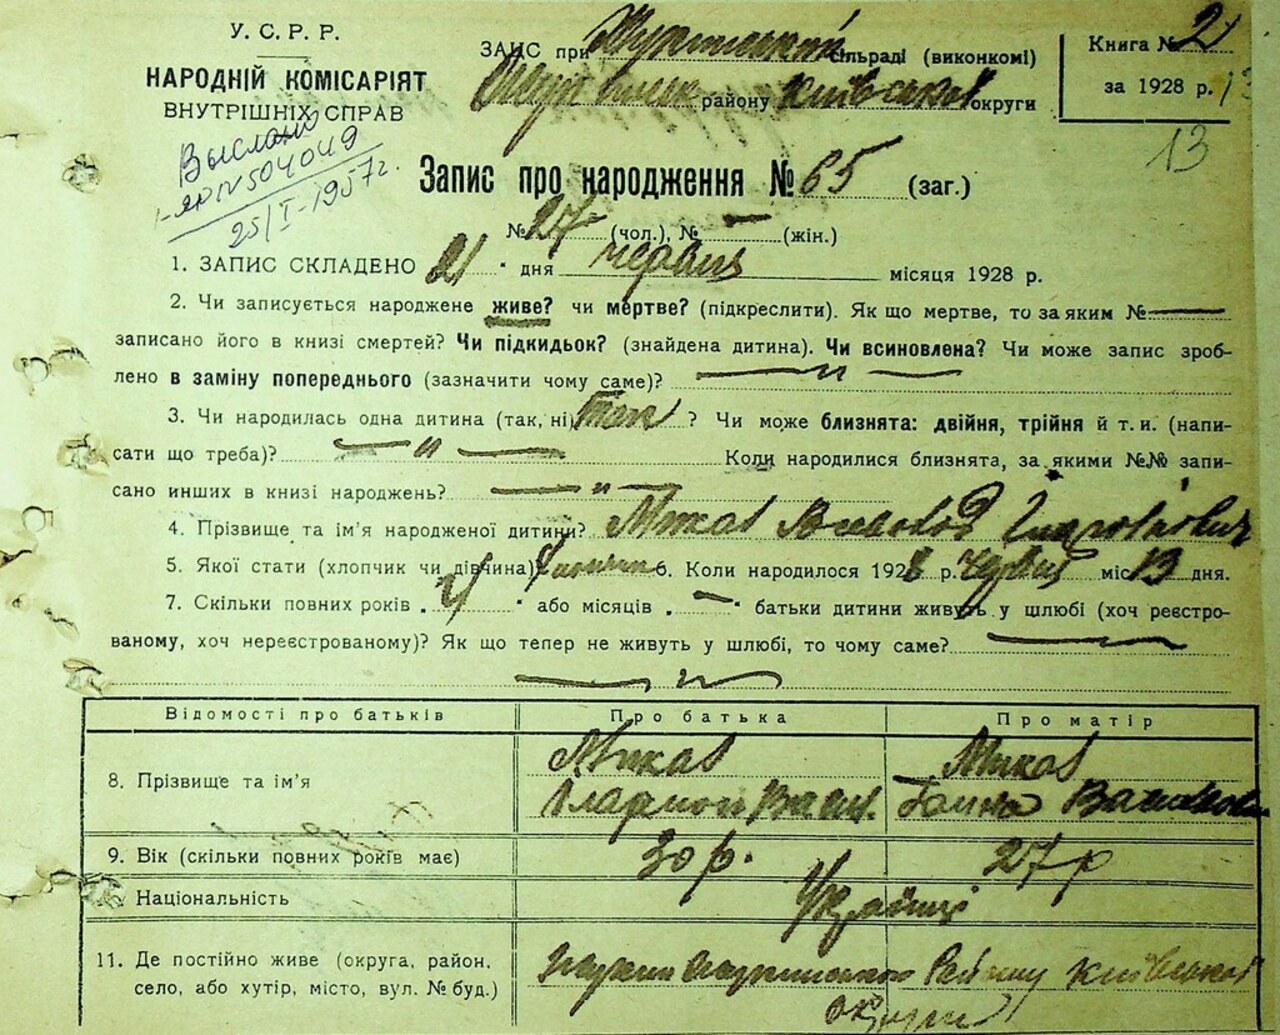 У. С. Р. Р.
НАРОДНІЙ КОМІСАРІЯТ
ВНУТРІШНІХ СПРАВ
ЗАЦС при сільраді (виконкомі)
району Київської округи
Книга № 2
за 1928 р.
13
Выслано
IV 504049
25/I-1957г.
Запис про народження № 65 (заг.)
№ 27 (чол.), № — (жін.)
1. ЗАПИС СКЛАДЕНО 21 " дня червня місяця 1928 р.
2. Чи записується народжене живе? чи мертве? (підкреслити). Як що мертве, то за яким № —
записано його в книзі смертей? Чи підкидьок? (знайдена дитина). Чи всиновлена? Чи може запис зроб-
лено в заміну попереднього (зазначити чому саме)? — " —
3. Чи народилась одна дитина (так, ні) так ? Чи може близнята: двійня, трійня й т. и. (напи-
сати що треба)? — " — Коли народилися близнята, за якими №№ запи-
сано инших в книзі народжень? — " —
4. Прізвище та ім'я народженої дитини? Микал Всеволод Іларіонович
5. Якої статі (хлопчик чи дівчина) 6. Коли народилося 1928 р. червня міс 13 дня.
7. Скільки повних років " або місяців — " батьки дитини живуть у шлюбі (хоч реєстро-
ваному, хоч нереєстрованому)? Як що тепер не живуть у шлюбі, то чому саме? —
— " —
Відомості про батьків Про батька Про матір
8. Прізвище та ім'я Микал Микал
Іларіон Васил. Ганна Василівна
9. Вік (скільки повних років має) 30 р. 27 р
Національність Українці
11. Де постійно живе (округа, район, Району Київської
село, або хутір, місто, вул. № буд.) округи